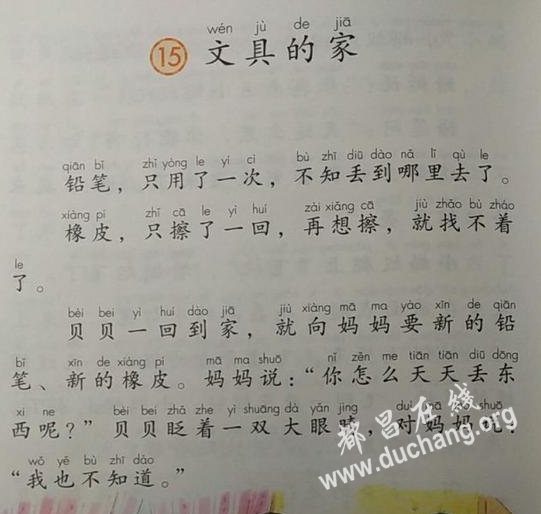 wén jù de jiā
15 文具的家
qiān bǐ zhǐ yòng le yí cì bù zhī diū dào nǎ lǐ qù le
铅笔，只用了一次，不知丢到哪里去了。
xiàng pí zhǐ cā le yì huí zài xiǎng cā jiù zhǎo bù zháo
橡皮，只擦了一回，再想擦，就找不着
le
了。
bèi bei yì huí dào jiā jiù xiàng mā ma yào xīn de qiān
贝贝一回到家，就向妈妈要新的铅
bǐ xīn de xiàng pí mā ma shuō nǐ zěn me tiān tiān diū dōng
笔、新的橡皮。妈妈说：“你怎么天天丢东
xi ne bèi bei zhǎ zhe yì shuāng dà yǎn jing duì mā ma shuō
西呢？”贝贝眨着一双大眼睛，对妈妈说：
wǒ yě bù zhī dào
“我也不知道。”
都昌在线
www.duchang.org